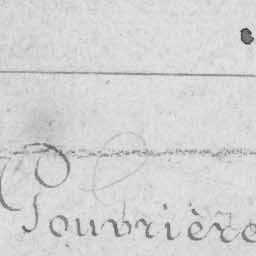 Pouvrière